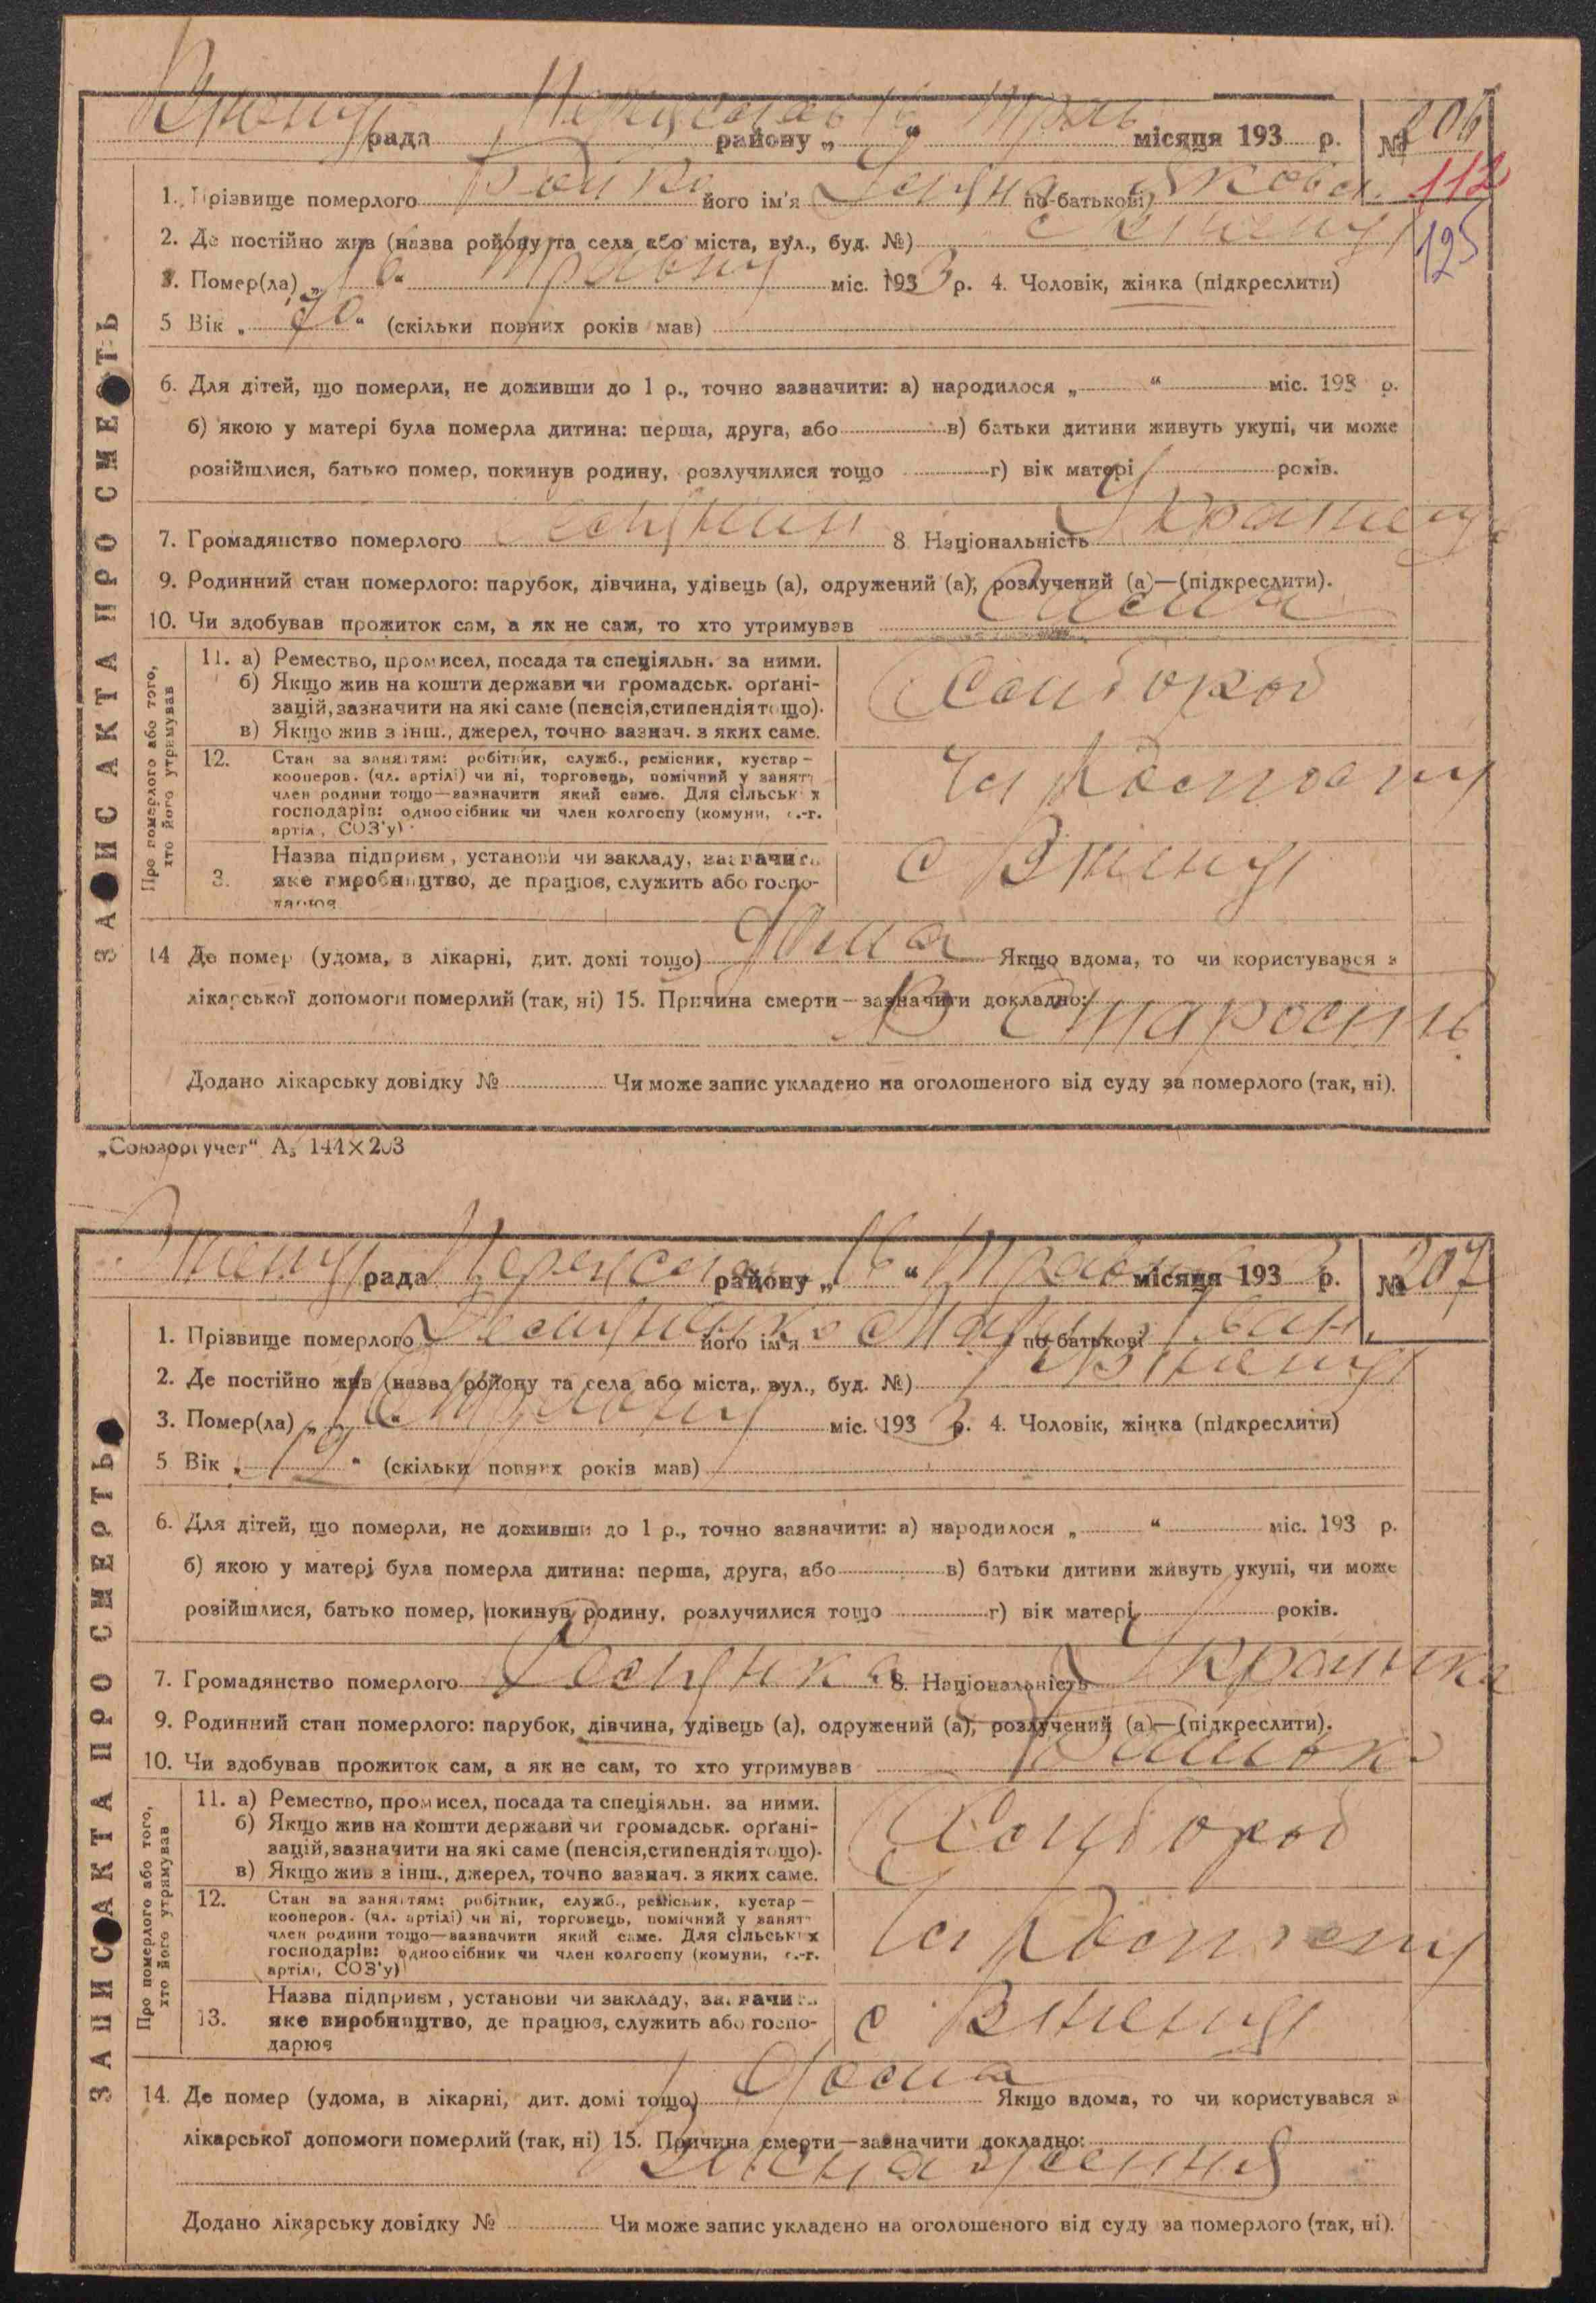 рада району „ 16 “ місяця 193 р. № 206
112
1. Прізвище померлого Бойко його ім'я по-батькові Яковл.
125
2. Де постійно жив (назва району та села або міста, вул., буд. №) с
3. Помер(ла) „ 16 “ травня міс. 1933 р. 4. Чоловік, жінка (підкреслити)
5 Вік „ 70 “ (скільки повних років мав)
6. Для дітей, що померли, не доживши до 1 р., точно зазначити: а) народилося „ “ міс. 193 р.
б) якою у матері була померла дитина: перша, друга, або в) батьки дитини живуть укупі, чи може
розійшлися, батько помер, покинув родину, розлучилися тощо г) вік матері років.
7. Громадянство померлого 8. Національність
9. Родинний стан померлого: парубок, дівчина, удівець (а), одружений (а), розлучений (а)—(підкреслити).
10. Чи здобував прожиток сам, а як не сам, то хто утримував Сама
ЗАПИС АКТА ПРО СМЕРТЬ
Про померлого або того, хто його утримував
11. а) Ремество, промисел, посада та спеціяльн. за ними.
б) Якщо жив на кошти держави чи громадськ. орґані-
зацій, зазначити на які саме (пенсія, стипендія тощо).
в) Якщо жив з інш., джерел, точно зазнач. з яких саме.
Хлібороб
12. Стан за заняттям: робітник, служб., ремісник, кустар—
кооперов. (чл. артілі) чи ні, торговець, помічний у занятт
член родини тощо—зазначити який саме. Для сільських
господарів: одноосібник чи член колгоспу (комуни, с.-г.
артілі, СОЗ'у)
13. Назва підприєм, установи чи закладу, зазначити
яке виробництво, де працює, служить або госпо-
дарює
с
14 Де помер (удома, в лікарні, дит. домі тощо) Якщо вдома, то чи користувався з
лікарської допомоги померлий (так, ні) 15. Причина смерти—зазначити докладно:
Старость
Додано лікарську довідку № Чи може запис укладено на оголошеного від суду за померлого (так, ні).
„Союзоргучет“ А₅ 144×203
рада району „ 16 “ Травня місяця 1933 р. № 207
1. Прізвище померлого його ім'я по-батькові Іван.
2. Де постійно жив (назва району та села або міста, вул., буд. №)
3. Помер(ла) „ 16 “ травня міс. 1933 р. 4. Чоловік, жінка (підкреслити)
5 Вік „ 19 “ (скільки повних років мав)
6. Для дітей, що померли, не доживши до 1 р., точно зазначити: а) народилося „ “ міс. 193 р.
б) якою у матері була померла дитина: перша, друга, або в) батьки дитини живуть укупі, чи може
розійшлися, батько помер, покинув родину, розлучилися тощо г) вік матері років.
7. Громадянство померлого 8. Національність Українка
9. Родинний стан померлого: парубок, дівчина, удівець (а), одружений (а), розлучений (а)—(підкреслити).
10. Чи здобував прожиток сам, а як не сам, то хто утримував Батько
ЗАПИС АКТА ПРО СМЕРТЬ
Про померлого або того, хто його утримував
11. а) Ремество, промисел, посада та спеціяльн. за ними.
б) Якщо жив на кошти держави чи громадськ. орґані-
зацій, зазначити на які саме (пенсія, стипендія тощо).
в) Якщо жив з інш., джерел, точно зазнач. з яких саме.
Хлібороб
12. Стан за заняттям: робітник, служб., ремісник, кустар—
кооперов. (чл. артілі) чи ні, торговець, помічний у занятт
член родини тощо—зазначити який саме. Для сільських
господарів: одноосібник чи член колгоспу (комуни, с.-г.
артілі, СОЗ'у)
13. Назва підприєм, установи чи закладу, зазначити
яке виробництво, де працює, служить або госпо-
дарює
с
14. Де помер (удома, в лікарні, дит. домі тощо) Якщо вдома, то чи користувався з
лікарської допомоги померлий (так, ні) 15. Причина смерти—зазначити докладно:
Виснаження
Додано лікарську довідку № Чи може запис укладено на оголошеного від суду за померлого (так, ні).